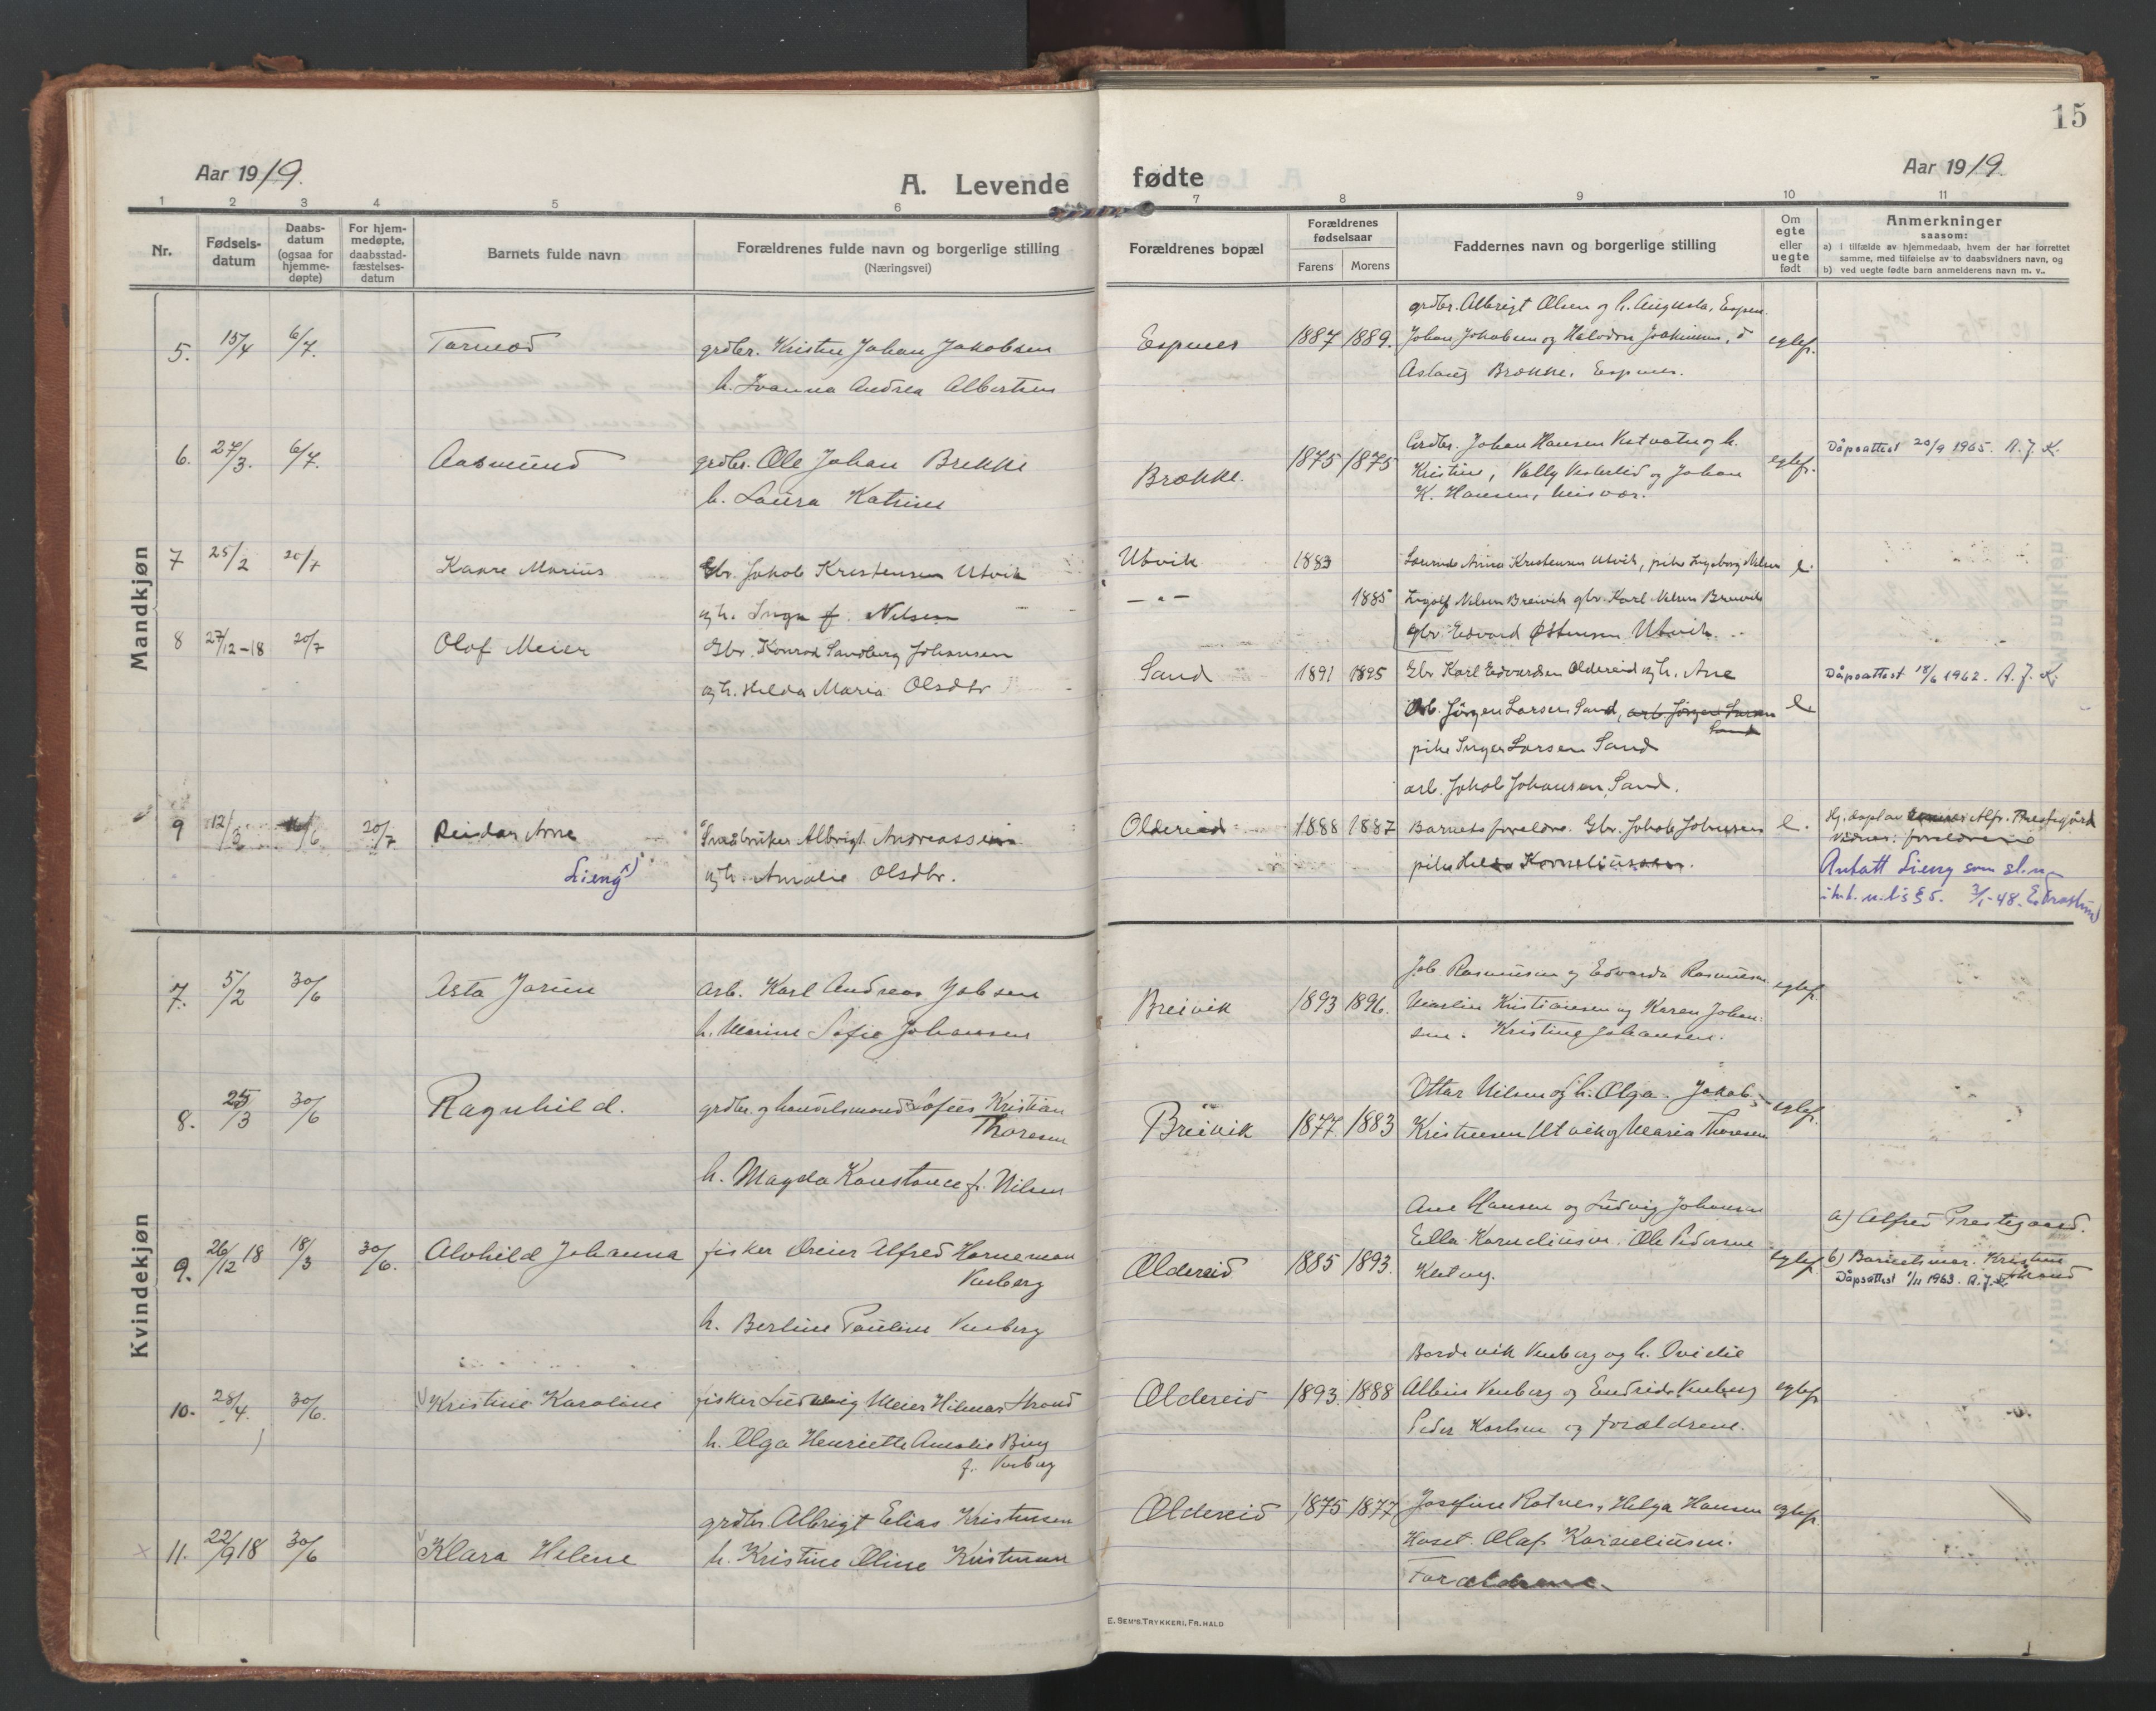 15
Aar 1919.
A. Levende fødte
Aar 1919.
1 2 3 4 5 6 7 8 9 10 11
Nr.
Fødsels-
datum
Daabs-
datum
(ogsaa for
hjemme-
døpte)
For hjem-
medøpte,
daabsstad-
fæstelses-
datum
Barnets fulde navn
Forældrenes fulde navn og borgerlige stilling
(Næringsvei)
Forældrenes bopæl
Forældrenes
fødselsaar
Farens Morens
Faddernes navn og borgerlige stilling
Om
egte
eller
uegte
født
Anmerkninger
saasom:
a) i tilfælde av hjemmedaab, hvem der har forrettet
samme, med tilføielse av to daabsvidners navn, og
b) ved uegte fødte barn anmelderens navn m. v..
Mandkjøn
5. 15/4 6/7. Tormod grdbr. Kristen Johan Jakobsen Espnes 1887 1889. grdbr. Albrigt Olsen og h. Augusta, Espnes.
h. Ivanna Andrea Albertsen Johan Jakobsen og Halvdan Joakimsen, egtef.
Aslaug Brække. Espnes.
6. 27/3. 6/7. Aasmund grdbr. Ole Johan Brekke Brække. 1875 1875 Grdbr. Johan Hansen og h. egtef. Dåpsattest 20/9 1965. A. J. K.
h. Laura Katrine Kristine, Vally og Johan
K. Hansen, Misvær.
7 25/2 20/7 Kaare Marius Gbr. Jakob Kristensen Utvik Utvik 1883 Anna Kristensen Utvik, pike Ingeborg Nilsen e.
og h. Inga f. Nilsen — " — 1885 Ingolf Nilsen Breivik gbr. Karl Nilsen Breivik
gbr. Edvard Østensen Utvik.
8 27/12-18 20/7 Olof Meier Gbr. Konrad Sandberg Johansen Sand 1891 1895 Gbr. Karl Edvardsen Oldereid og h. Ane e. Dåpsattest 18/6 1962. A. J. K.
og h. Hilda Maria Olsdtr Arb. Jörgen Larsen Sand, arb. Jörgen Larsen
Sand
pike Inger Larsen Sand
arb. Jakob Johansen, Sand.
9 12/3 /6 20/7 Reidar Arne Småbruker Albrigt Andreassen Oldereid 1888 1887 Barnets foreldre. Gbr. Jakob Johansen e. Hj. døpt av Alfr. Prestegård
Lieng x) og h. Amalie Olsdtr. pike Helga Korneliussen. Vidner: foreldrene
Antatt Lieng som sl.n.
i h.h. n.l. § 5. 3/1-48.
Kvindekjøn
7. 5/2 30/6 Asta Jorun Arb. Karl Andreas Jobsen Breivik 1893 1896. Job Rasmussen og Edvarda Rasmussen egtef.
h. Marine Sofie Johansen Kristiansen og Karen Johan-
sen. Kristine Johansen.
8. 25/3 30/6 Ragnhild. grdbr. og handelsmand Sofus Kristian Breivik 1877. 1883 Ottar Nilsen og h. Olga. Jakob egtef.
Thoresen Kristensen Utvik og Maria Thoresen
h. Magda Konstance f. Nilsen
9. 26/12 18 18/3 30/6. Alvhild Johanna fisker Dreier Alfred Horneman Oldereid 1885 1893. Ane Hansen og Ludvig Johansen egtef. a) Alfred Prestegaard.
Venberg Ella Korneliusen. Ole Pedersen b) Barnets mor. Kristine
Klætvæg. Strand
Dåpsattest 1/11 1963. A. J. K.
h. Berline Pauline Venberg
10. 28/4. 30/6. Kristine Karoline fisker Ludvig Meier Hilmar Strand Oldereid 1893. 1888 Bardevik Venberg og h. Ovidie
h. Olga Henriette Amalie Birg Albine Venberg og Endride Venberg egtef.
f. Venberg Peder Karlsen og forældrene.
11. 22/9 18 30/6 Klara Helene grdbr. Albrigt Elias Kristensen Oldereid 1875 1877 Josefine Rotnes, Helga Hansen egtef.
h. Kristine Oline Kristensen Hoset. Olaf Korneliusen.
Forældrene.
E. SEM'S TRYKKERI, FR. HALD